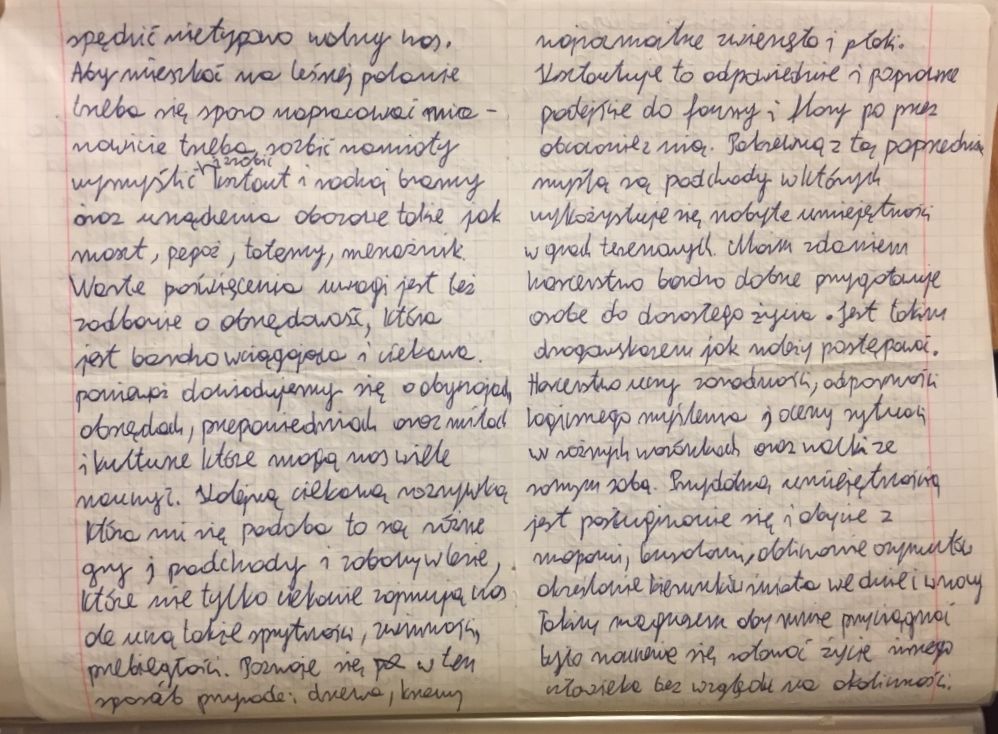 spędzić nietypowo wolny czas.
Aby mieszkać na leśnej polanie
trzeba się sporo napracować mia-
nowicie trzeba rozbić namioty
wymyślić i zrobić kształt i rodzaj bramy
oraz urządzenia obozowe takie jak
maszt, totemy, menażnik.
Warte poświęcenia uwagi jest też
zadbanie o obrzędowość, która
jest bardzo wciągająca i ciekawa.
ponieważ dowiadujemy się o obyczajach
obrzędach, przepowiedniach oraz mitach
i kulturze które mogą nas wiele
nauczyć. Kolejną ciekawą rozrywką
która mi się podoba to są różne
gry i podchody i zabawy w lesie,
które nie tylko ciekawie zajmują czas
ale uczą także sprytności, zwinności,
przebiegłości. Poznaje się w ten
sposób przyrodę: drzewa, krzewy
napotkane zwierzęta i ptaki.
Kształtuje to odpowiednie i poprawne
podejście do fauny i flory po przez
obcowanie z nią. Pokrewną z tą poprzednią
myślą są podchody w których
wykożystuje się nabyte umiejętności
w grach terenowych. Moim zdaniem
harcerstwo bardzo dobrze przygotowuje
osobe do dorosłego życia. Jest takim
drogowskazem jak należy postępować.
Harcerstwo uczy zaradności, odporności
logicznego myślenia i oceny sytuacji
w różnych warunkach oraz walki ze
samym sobą. Przydatną umiejętnością
jest posługiwanie się i obycie z
mapami, busolami, obliczanie azymutów
określanie kierunków świata we dnie i w nocy
Takim magnesem aby mnie przyciągnąć
było nauczenie się ratować życie innego
człowieka bez względu na okoliczności.